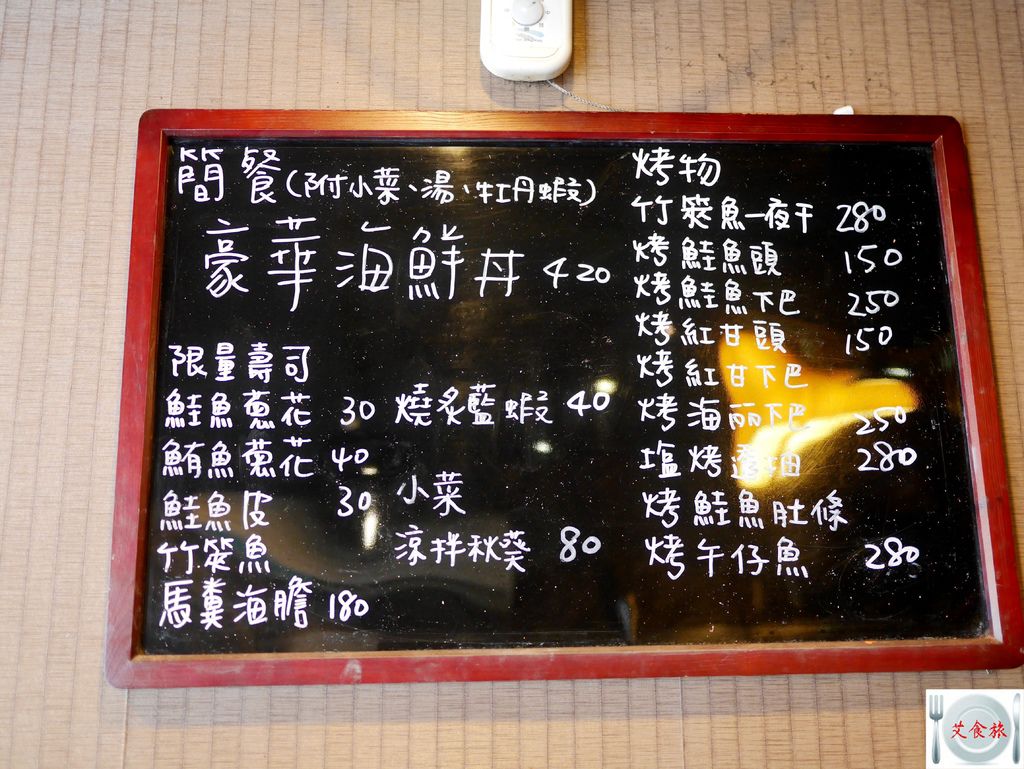 簡餐(附小菜、湯、牡丹蝦)
豪華海鮮丼 420
限量壽司
鮭魚蔥花 30
鮪魚蔥花 40
鮭魚皮 30
竹筴魚
馬糞海膽 180
燒炙藍蝦 40
小菜
涼拌秋葵 80
烤物
竹筴魚一夜干 280
烤鮭魚頭 150
烤鮭魚下巴 250
烤紅甘頭 150
烤紅甘下巴
烤海丽下巴 250
塩烤透抽 280
烤鮭魚肚條
烤午仔魚 280
艾食旅